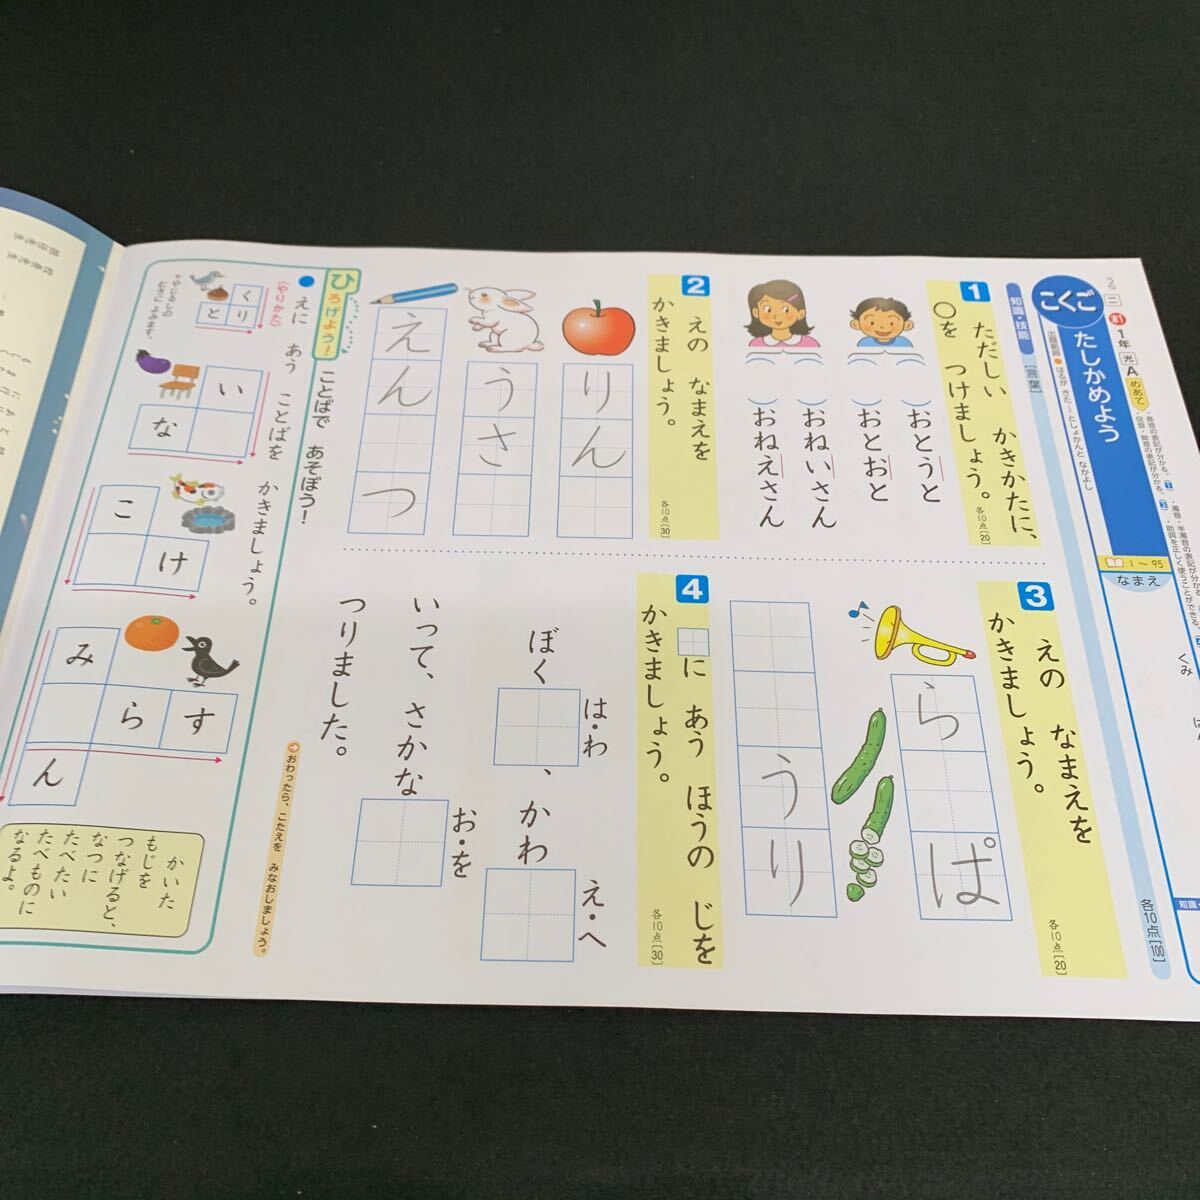 こくご
たしかめよう
1年
光
A
めあて
出題範囲 ● はるが きた〜としょかんと なかよし
1〜95
なまえ
くみ
各10点[100]
知識・技能
[言葉]
1 ただしい かきかたに、
○を つけましょう。
各10点[20]
( )おとうと
( )おとおと
( )おねいさん
( )おねえさん
2 えの なまえを
かきましょう。
各10点[30]
りん
うさ
えんつ
3 えの なまえを
かきましょう。
各10点[20]
らぱ
うり
4 □に あう ほうの じを
かきましょう。
各10点[30]
ぼく□、かわ□
は・わ
え・へ
いって、さかな□
お・を
つりました。
ひろげよう!
ことばで あそぼう!
● えに あう ことばを かきましょう。
〈やりかた〉
くり
と
＊やじるしの
むきによみます。
い
な
こ
け
み
らす
ん
かいた
もじを
つなげると、
なつに
たべたい
たべものに
なるよ。
おわったら、こたえを みなおしましょう。